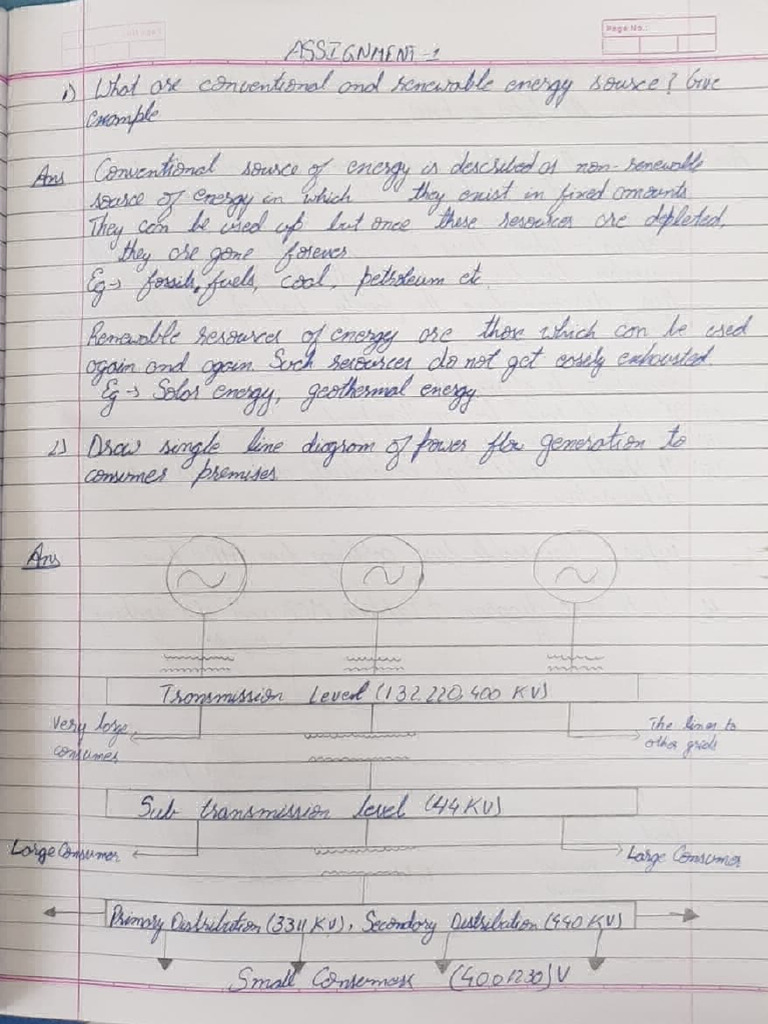 Page No.:
ASSIGNMENT-1
1) What are conventional and renewable energy source? Give
example
Ans Conventional source of energy is described as non-renewable
source of energy in which they exist in fixed amounts
They can be used up but once these resources are depleted,
they are gone forever
Eg→ fossils, fuels, coal, petroleum etc.
Renewable resources of energy are those which can be used
again and again. Such resources do not get easely exhausted
Eg → Solar energy, geothermal energy
2) Draw single line diagram of power flow generation to
consumer premises
Ans
Transmission Level (132,220,400 KV)
Very large consumer
The lines to other grids
Sub transmission level (44KV)
Large Consumer
Large Consumer
Primary Distribution (3311KV), Secondary Distribution (440KV)
Small Consumers (400/230)V